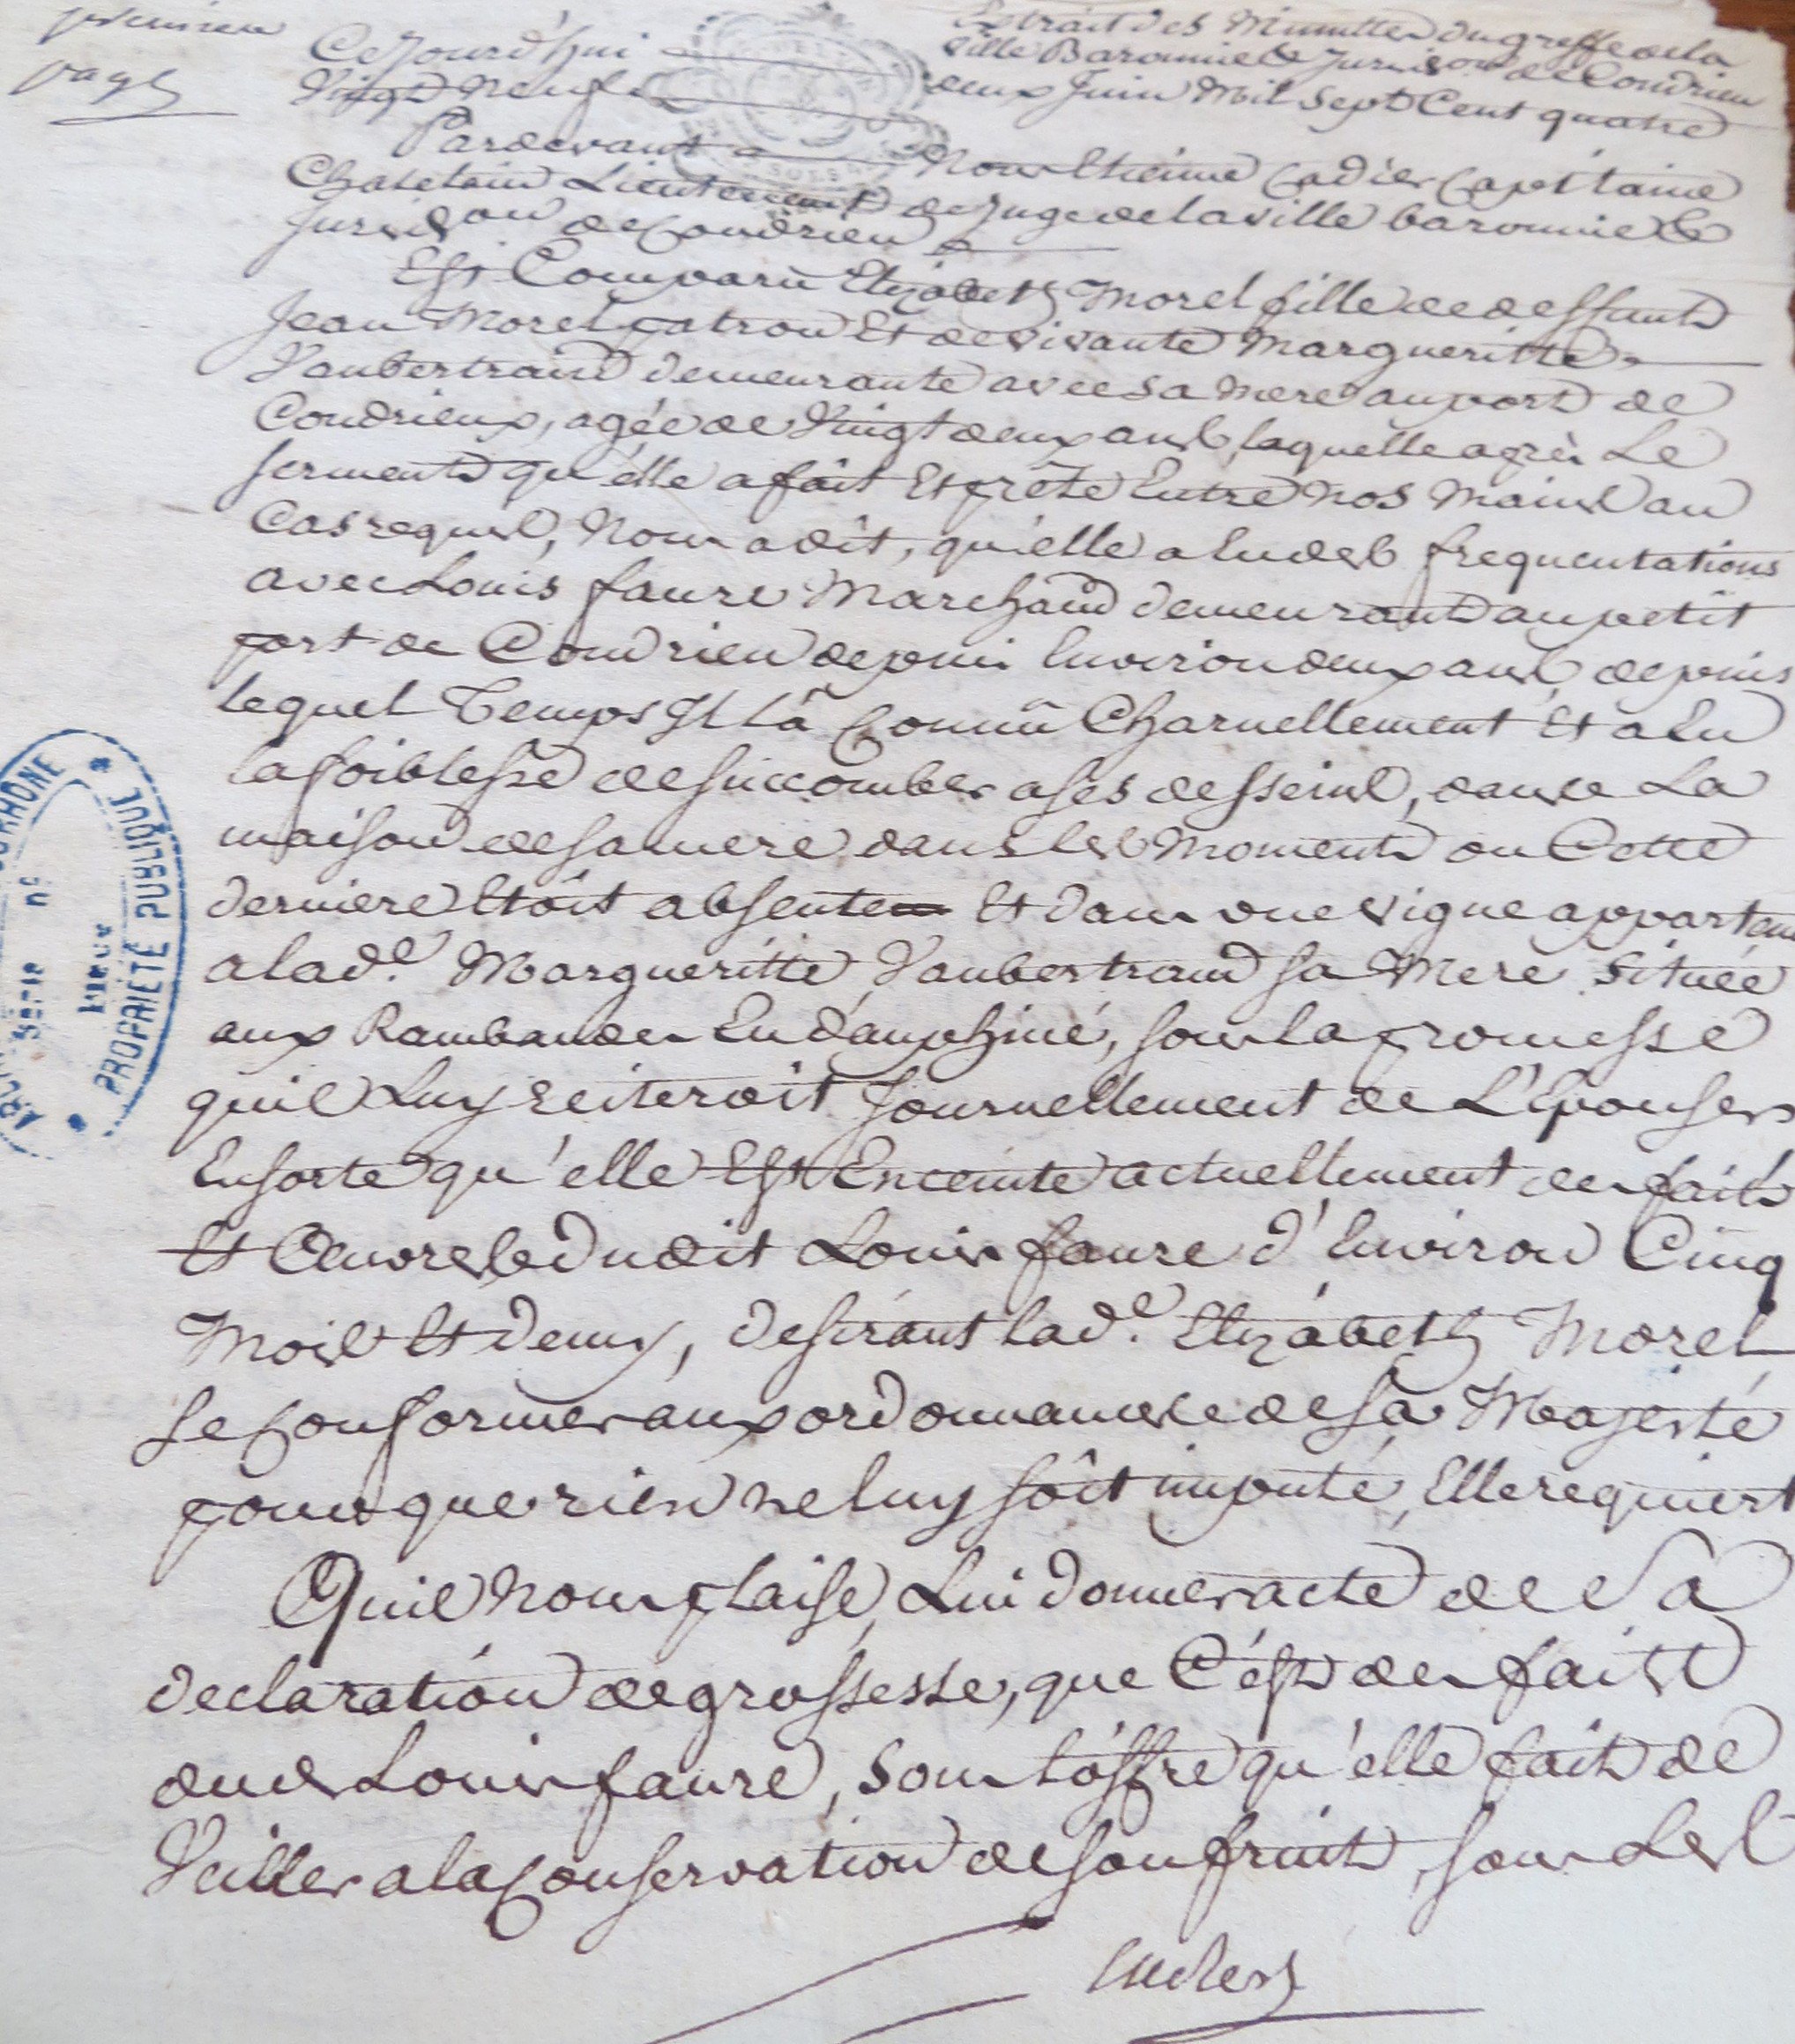 premiere
page
Extrait des Minuttes du greffe de la
Ville Baronnie & Jurisd.on de Condrieu
Cejourd'hui deux Juin Mil Sept Cent quatre
Vingt Neuf
Pardevant Nous Etienne Cadier Capitaine
Chatelain Lieutenent de Juge de la ville baronnie &
Jurisd.on de Condrieu
Est Comparu Elizabeth Morel fille de deffunt
Jean Morel patron Et de vivante Margueritte
Vaubertrand demeurante avec sa mere au port de
Condrieux, agée de Vingt deux ans, laquelle après Le
serment qu'elle a fait Et prété Entre nos mains au
Cas requis, Nous a dit, qu'elle a Eu des frequentations
avec Louis faure Marchand demeurant au petit
port de Condrieu depuis Environ deux ans, depuis
lequel Temps Il l'a Connû Charnellement Et a Eu
la foiblesse de succomber a ses desseins, dans La
maison de sa mere dans les Moments ou Cette
derniere Etoit absente Et dans une vigne appartenante
a lad.e Margueritte Vaubertrand sa Mere Située
aux Rambaudes En dauphiné, sous la promesse
quil Luy reiteroit Journellement de L'Epouser
Ensorte qu'elle Est Enceinte actuellement des faits
Et Oeuvres dudit Louis faure d'Environ Cinq
Mois Et demy, desirant lad.e Elizabeth Morel
se Conformer aux ordonnances de sa Majesté
pour que rien ne luy soit imputé, Elle requiert
Quil Nous plaise Lui donner acte de Sa
declaration de grossesse, que C'est des faits
dud Louis faure, Sous l'offre qu'elle fait de
Veiller a la Conservation de son fruit, sous Les
PROPRIÉTÉ PUBLIQUE
Série n°
Pièce
RHONE